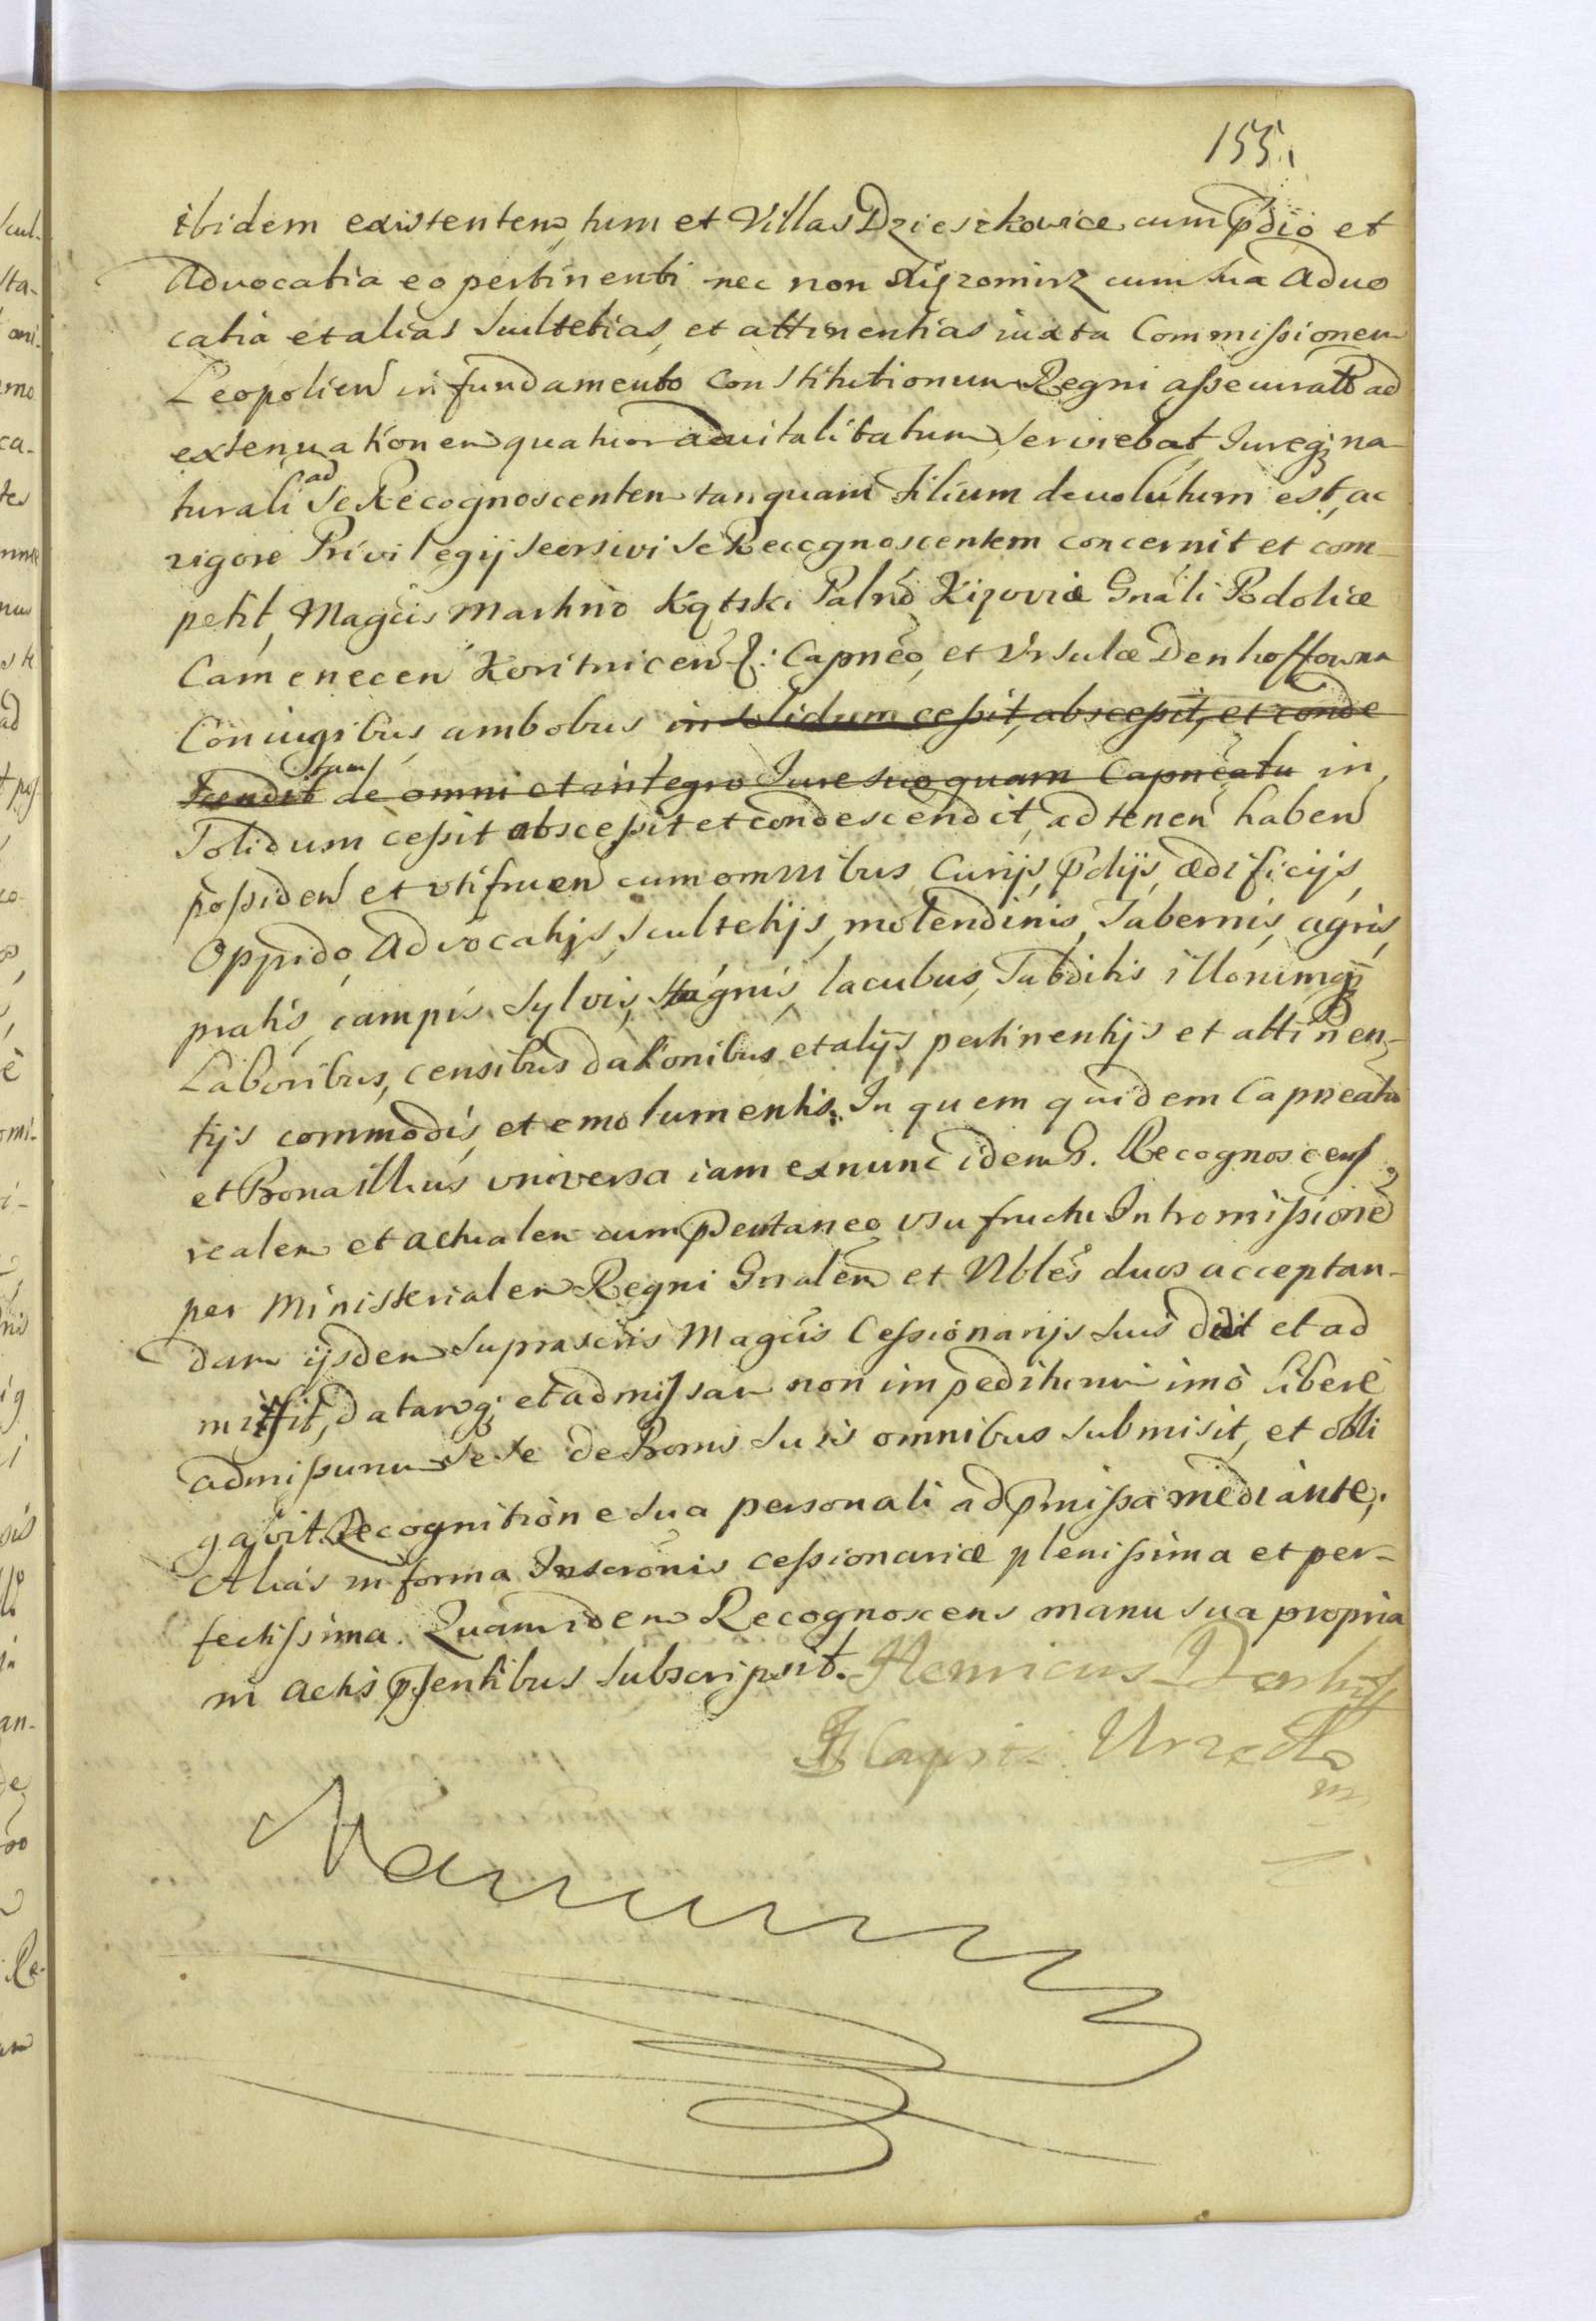 155.
ibidem existentem, tum et Villas Dzieszkowice cum pdio et
Advocatia eo pertinenti nec non cum sua Advo
catia et alias Scultetias, et attinentias iuxta Commissionem
Leopolien in fundamento Constitutionum Regni assecurat ad
extenuationem quatuor advitalitatum serviebat, Jureq; na
turali ad se Recognoscentem tanquam Filium devolutum est, ac
vigore Privilegij seorsivi se Recognoscentem concernit et com
petit, Magcis Martino Kątski Palno Kijoviæ Gnali Podoliæ
Camenecen Koritnicen &: Capneo, et Ursulæ Denhoffowna
Coniugibus ambobus in solidum cessit, abscessit, et conde
scendit de omni et integro Jure suo quam Capneatu in
solidum cessit abscessit et condescendit, ad tenen haben
possiden et utifruen cum omnibus Curijs, pdijs, ædificijs,
Oppido, Advocatijs, scultetijs, molendinis, Tabernis, agris,
pratis, campis, Sylvis, stagnis, lacubus, Subditis illorumq;
Laboribus, censibus dationibus et alijs pertinentijs et attinen-
tijs commodis, et emolumentis. In quem quidem Capneatu
et Bona illius universa iam ex nunc idem G. Recognoscens
realem et actualem cum pentaneo usufructu Intromissione
per Ministerialem Regni Gnalem et Nbles duos acceptan-
dam ijsdem suprascris Magcis Cessionarijs suis dedit et ad
misit, datamq; et admissam non impediturum imò liberè
admissurum sese de Bonis suis omnibus submisit, et obli
gavit. Recognitione sua personali ad pmissa mediante,
Alias in forma Inscronis cessionariæ plenissima et per-
fectissima. Quam idem Recognoscens manu sua propria
in Actis psentibus subscripsit. Henricus Denhoff